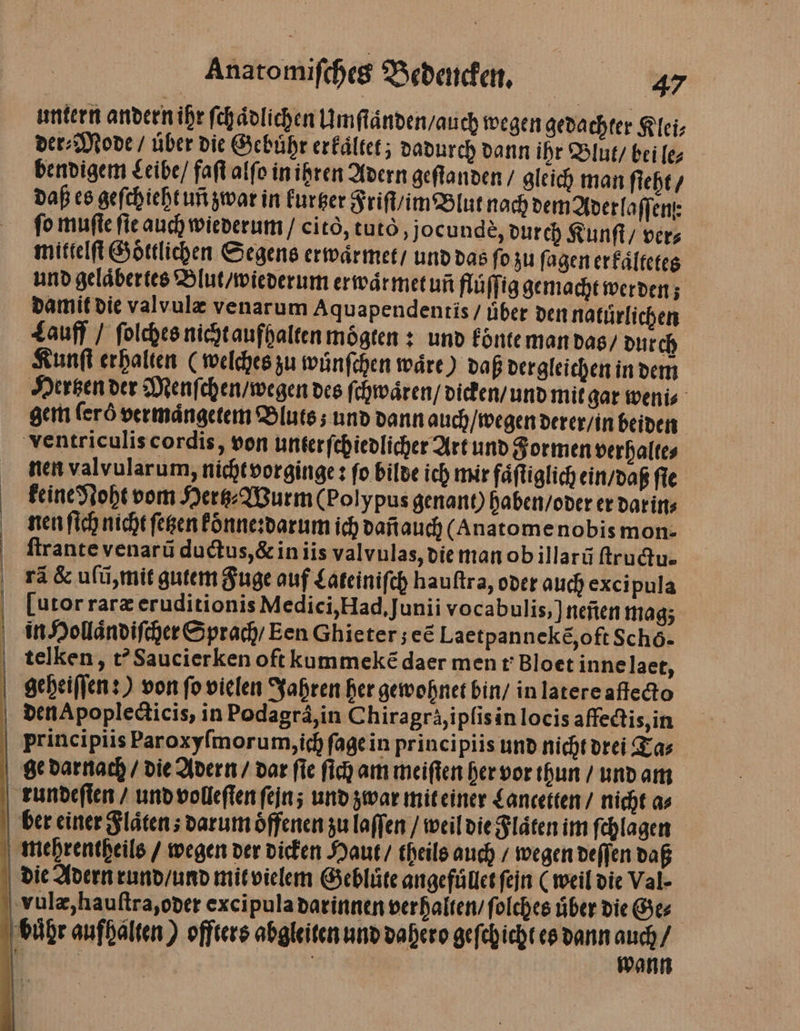 Anatomiſches Bedencken. 47
untern andern ihr ſchädlichen Umſtänden/auch wegen gedachter Klei⸗
der⸗Mode / über die Gebühr erkältet; dadurch dann ihr Blut/ bei le⸗
bendigem Leibe/ faſt alſo in ihren Adern geſtanden / gleich man ſieht /
daß es geſchieht uñ zwar in kurtzer Friſt/im Blut nach dem Aderlaſſen:
ſo muſte ſie auch wiederum / citò, tutò, jocundè, durch Kunſt / ver⸗
mittelſt Göttlichen Segens erwärmet / und das ſo zu ſagen erkältetes
und geläbertes Blut/wiederum erwärmet uñ flüſſig gemacht werden;
damit die valvulæ venarum Aquapendentis / über den natürlichen
Lauff / ſolches nicht aufhalten mögten : und könte man das / durch
Kunſt erhalten (welches zu wünſchen wäre) daß dergleichen in dem
Hertzen der Menſchen/wegen des ſchwären/ dicken/ und mit gar weni⸗
gem ſerô vermängetem Bluts; und dann auch/wegen derer/in beiden
ventriculis cordis, von unterſchiedlicher Art und Formen verhalte⸗
nen valvularum, nicht vorginge : ſo bilde ich mir fäſtiglich ein/daß ſie
keine Noht vom Hertz⸗Wurm (Polypus genant) haben/oder er darin⸗
nen ſich nicht ſetzen könne: darum ich dañ auch (Anatome nobis mon-
ſtrante venarũ ductus, & in iis valvulas, die man ob illarũ ſtructu-
rã & uſũ, mit gutem Fuge auf Lateiniſch hauſtra, oder auch excipula
[utor raræ eruditionis Medici, Had. Junii vocabulis,] neñen mag;
in Holländiſcher Sprach/ Een Ghieter; eẽ Laetpannekẽ, oft Schó-
telken, t’ Saucierken oft kummekẽ daer men t’ Bloet inne laet,
geheiſſen:) von ſo vielen Jahren her gewohnet bin/ in latere affecto
den Apoplecticis, in Podagrâ, in Chiragrà, ipſis in locis affectis, in
principiis Paroxyſmorum, ich ſage in principiis und nicht drei Ta⸗
ge darnach / die Adern / dar ſie ſich am meiſten her vor thun / und am
rundeſten / und volleſten ſejn; und zwar mit einer Lancetten / nicht a⸗
ber einer Fläten; darum öffenen zu laſſen / weil die Fläten im ſchlagen
mehrentheils / wegen der dicken Haut / theils auch / wegen deſſen daß
die Adern rund/und mit vielem Geblüte angefüllet ſejn (weil die Val-
vulæ, hauſtra, oder excipula darinnen verhalten/ ſolches über die Ge⸗
bühr aufhälten) offters abgleiten und dahero geſchicht es dann auch /
wann